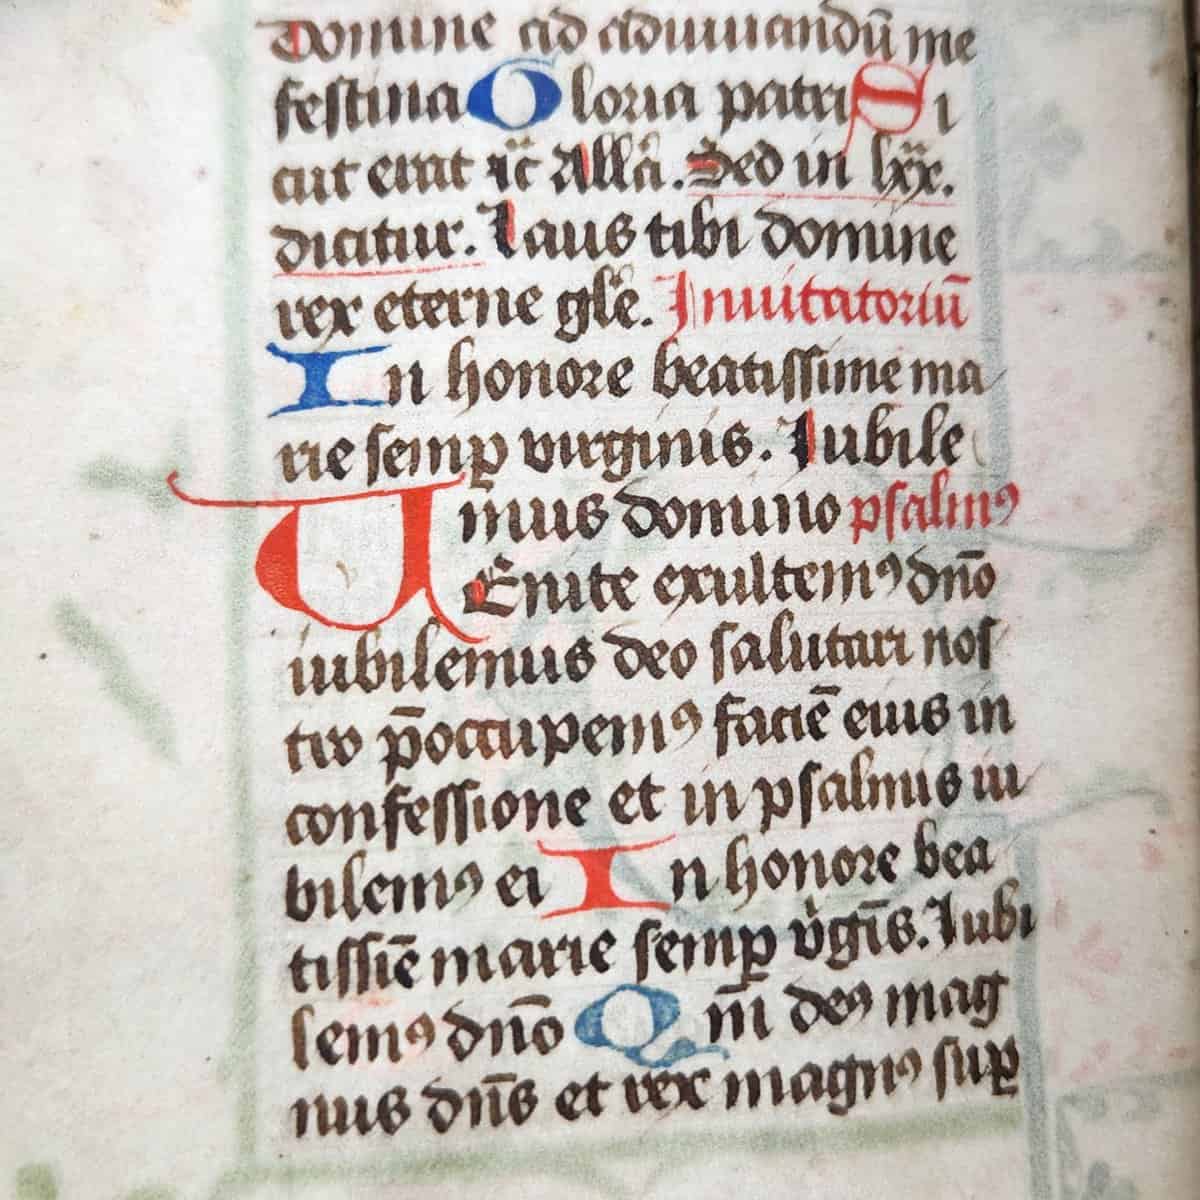 Domine ad adiuuandū me
festina Gloria patri Si
cut erat ⁊c̄ Allā. Sed in lxx.
dicitur. Laus tibi domine
rex eterne gl̄e. Inuitatoriū
In honore beatissime ma
rie semꝑ virginis. Iubile
mus domino psalmꝰ
VEnite exultemꝰ dn̄o
iubilemus deo salutari nos
tro p̄occupemꝰ faciē eius in
confessione et in psalmis iu
bilemꝰ ei In honore bea
tissīe marie semꝑ v̇gīs. Iubi
lemꝰ dn̄o Qm̄ deꝰ mag
nus dn̄s et rex magnꝰ suꝑ